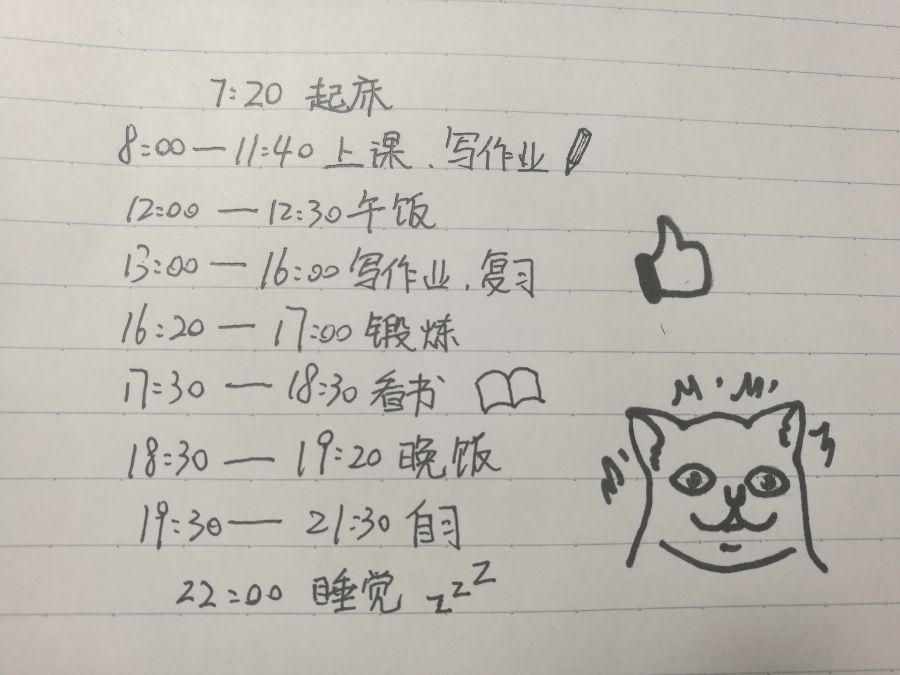 7:20 起床
8:00—11:40 上课、写作业
12:00—12:30 午饭
13:00—16:00 写作业、复习
16:20—17:00 锻炼
17:30—18:30 看书
18:30—19:20 晚饭
19:30—21:30 自习
22:00 睡觉 zzz